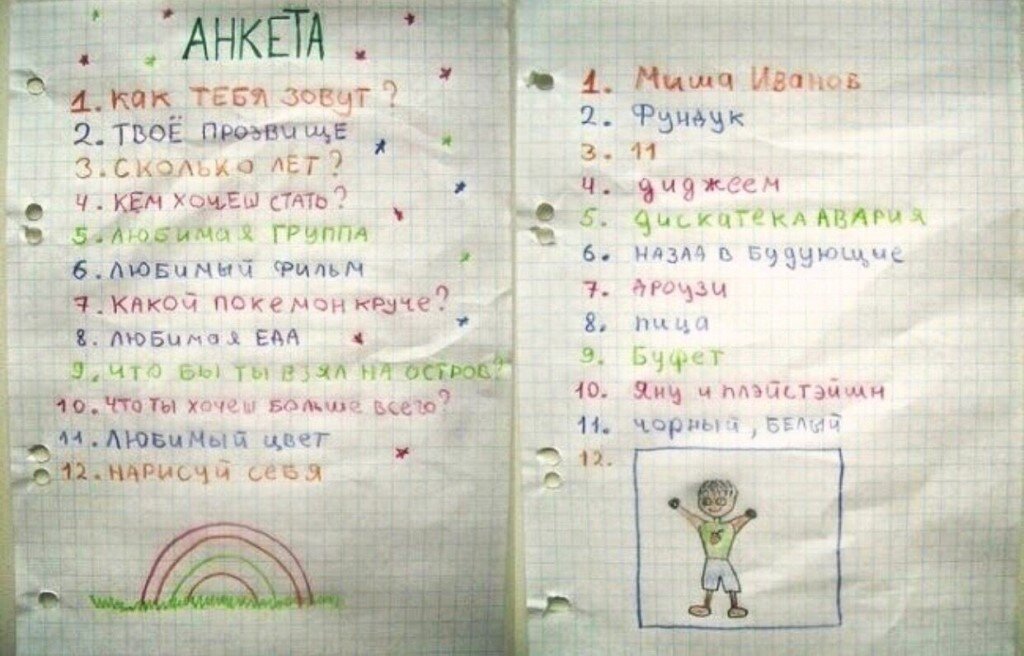 АНКЕТА
1. КАК ТЕБЯ ЗОВУТ?
2. ТВОЁ ПРОЗВИЩЕ
3. СКОЛЬКО ЛЕТ?
4. КЕМ ХОЧЕШ СТАТЬ?
5. ЛЮБИМАЯ ГРУППА
6. ЛЮБИМЫЙ ФИЛЬМ
7. КАКОЙ ПОКЕМОН КРУЧЕ?
8. ЛЮБИМАЯ ЕДА
9. ЧТО БЫ ТЫ ВЗЯЛ НА ОСТРОВ?
10. ЧТО ТЫ ХОЧЕШ БОЛЬШЕ ВСЕГО?
11. ЛЮБИМЫЙ ЦВЕТ
12. НАРИСУЙ СЕБЯ
1. Миша Иванов
2. Фундук
3. 11
4. диджеем
5. дискатека АВАРИЯ
6. НАЗАД в будующие
7. дроузи
8. пица
9. Буфет
10. Яну и плэйстэйшн
11. чорный, БЕЛЫЙ
12.